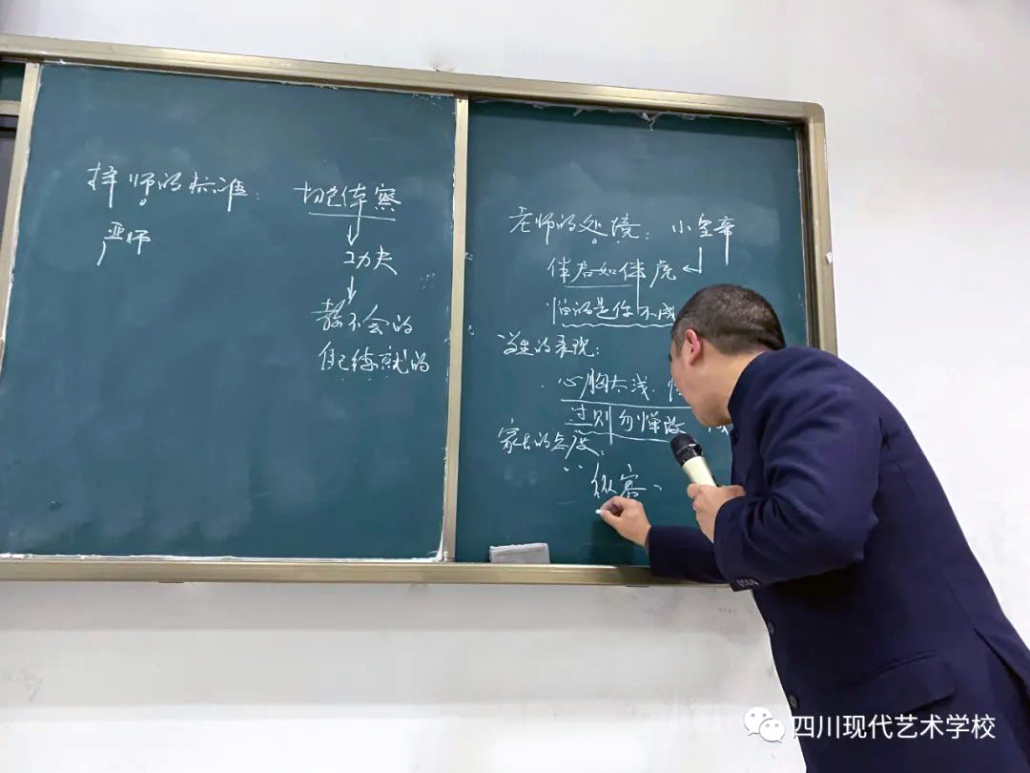 择师的标准：
严师
切己体察
功夫
教不会的
自己练就的
老师的处境：小皇帝
伴君如伴虎
怕的是你不成
学生的表现：
心胸太浅
过则勿惮改
家长的态度：
纵容、
四川现代艺术学校